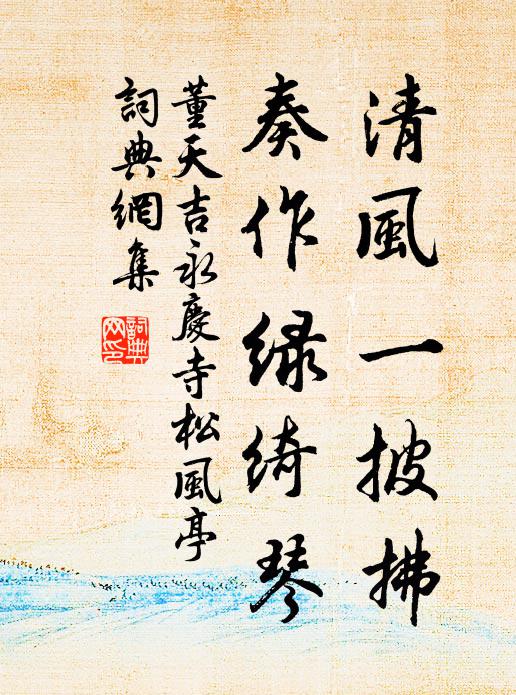 清風一披拂
奏作緑綺琴
董天吉永慶寺松風亭
詞典網集
詞典網印